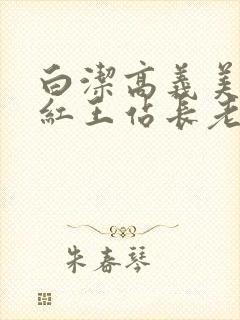 白潔高義美
紅王佔長老
朱春琴